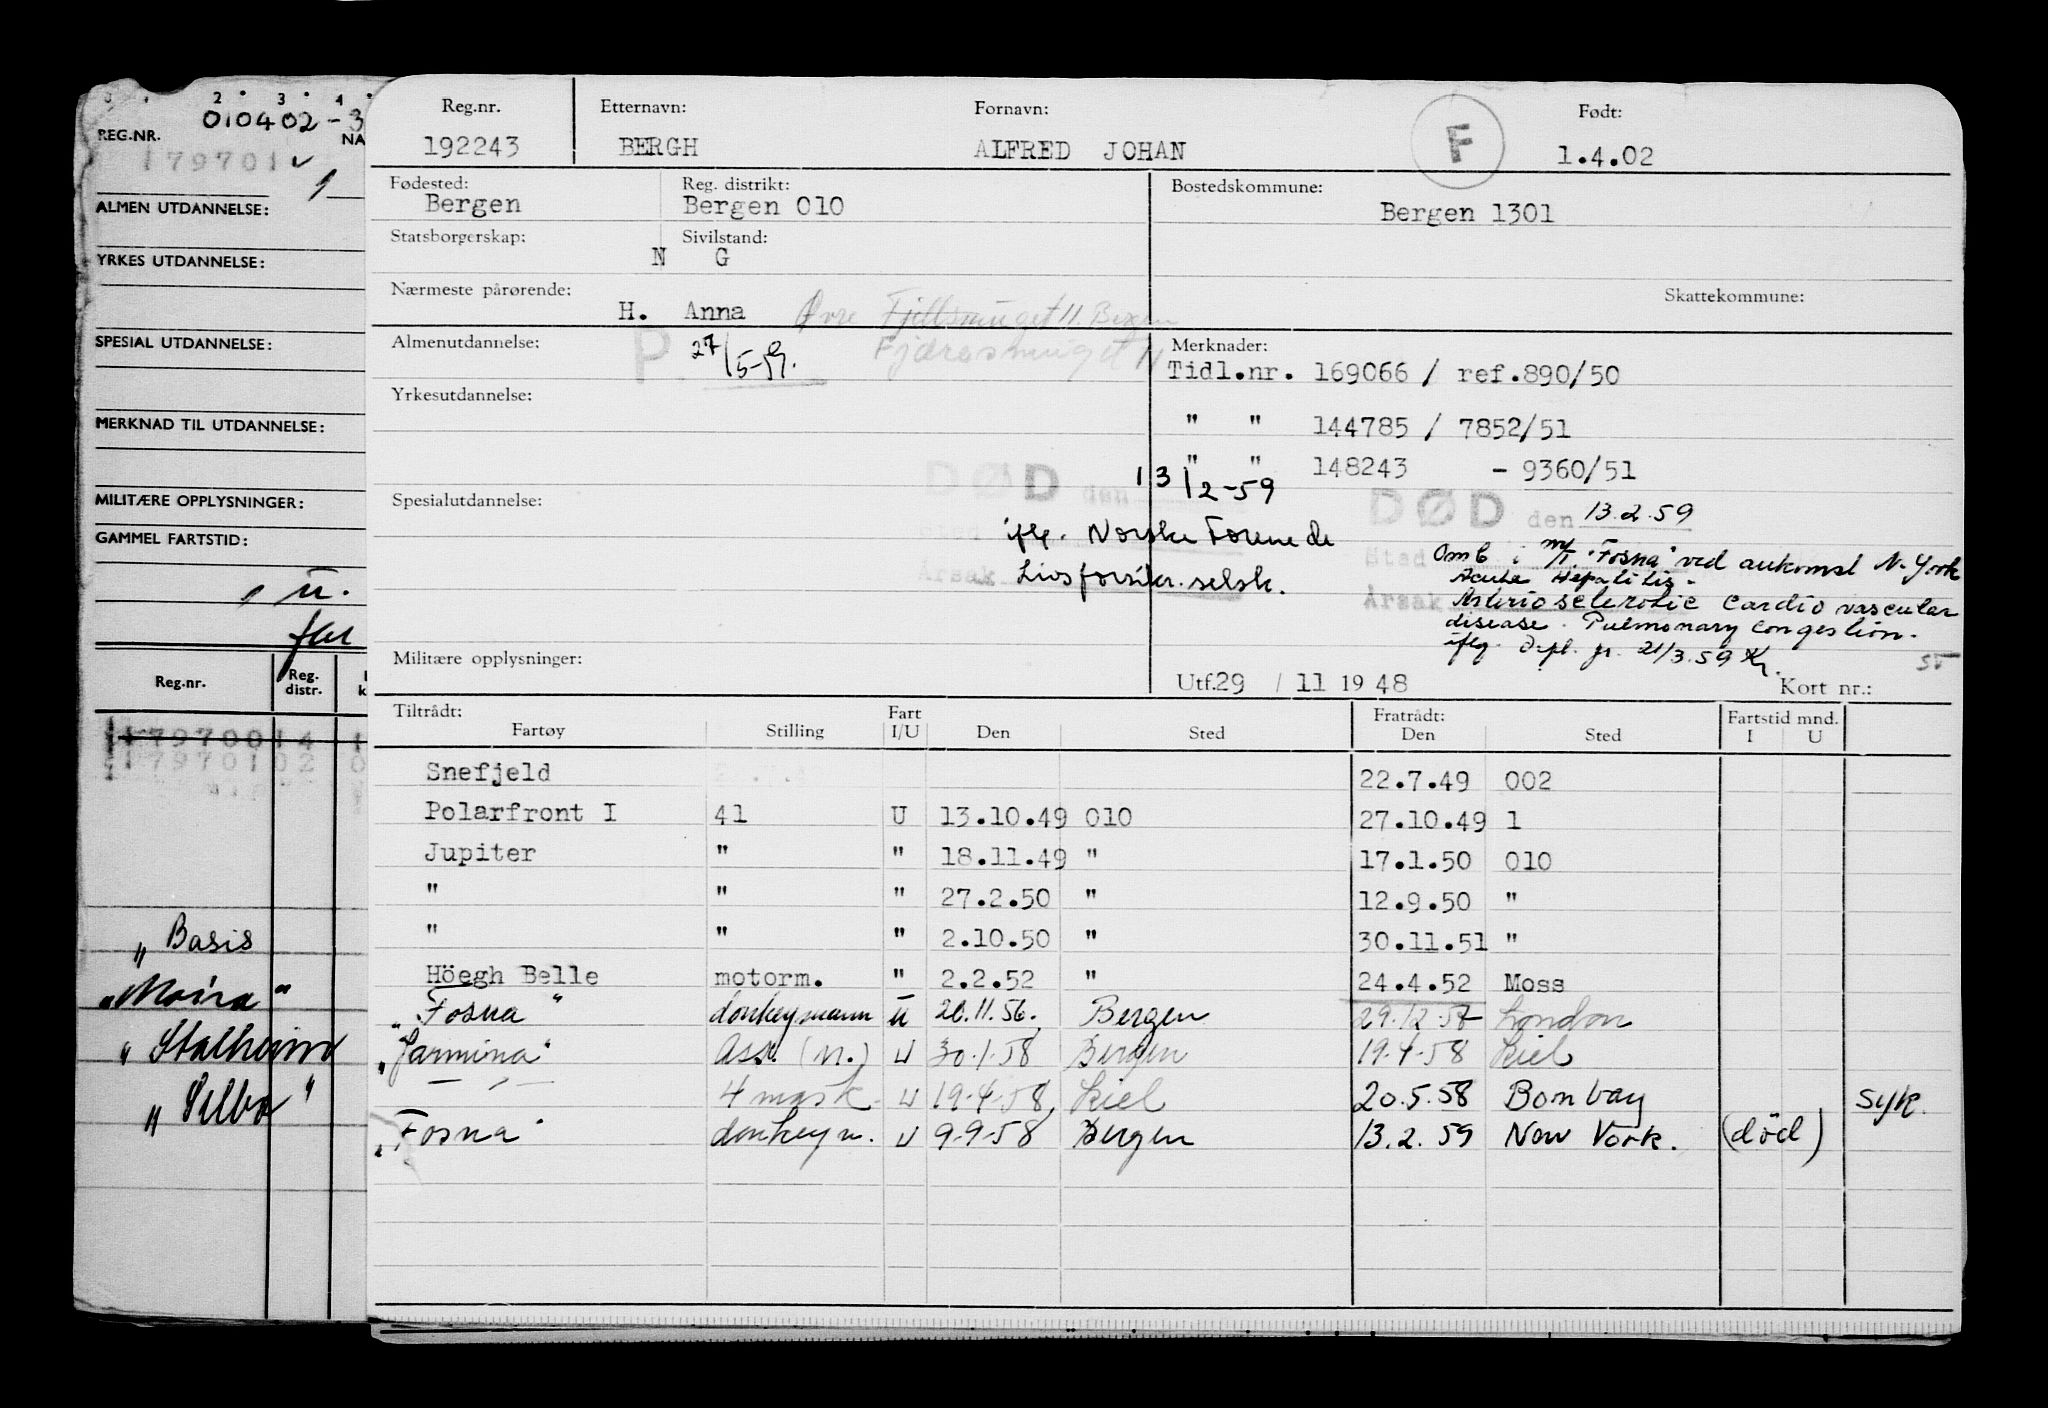 2 3 4
010402-3
REG.NR. NA
179701
ALMEN UTDANNELSE:
YRKES UTDANNELSE:
SPESIAL UTDANNELSE:
MERKNAD TIL UTDANNELSE:
MILITÆRE OPPLYSNINGER:
GAMMEL FARTSTID:
u.
Reg.nr. Reg. distr.
179700 14 1
179701 02 0
" Basis
"Moira"
"Stalheim
"Selbo"
Reg.nr. Etternavn: Fornavn: Født:
192243 BERGH ALFRED JOHAN F 1.4.02
Fødested: Reg. distrikt: Bostedskommune:
Bergen Bergen 010 Bergen 1301
Statsborgerskap: Sivilstand:
N G
Nærmeste pårørende: Skattekommune:
H. Anna Øvre Fjellsmuget 11. Bergen
Almenutdannelse: P. 27/5-59. Fjærosmuget 11 Merknader:
Tidl.nr. 169066 / ref.890/50
Yrkesutdannelse:
" " 144785 / 7852/51
" " 148243 - 9360/51
DØD den 13/2-59
Spesialutdannelse:
DØD den 13.2.59
iflg. Norske Forenede
Livsforsikr.selsk.
Årsak
Sted Omb. i m/t. "Fosna" ved ankomst N. York
Acute Hepatitis.
Årsak Asteriosclerotic cardio vascular
disease. Pulmonary congestion.
iflg. depl. gr. 21/3.59 Kr.
Militære opplysninger:
Utf.29 / 11 19 48 Kort nr.:
Tiltrådt: Fart Fratrådt: Fartstid mnd.
Fartøy Stilling I/U Den Sted Den Sted I U
Snefjeld 22.7.49 002
Polarfront I 41 U 13.10.49 010 27.10.49 1
Jupiter " " 18.11.49 " 17.1.50 010
" " " 27.2.50 " 12.9.50 "
" " " 2.10.50 " 30.11.51 "
Höegh Belle motorm. " 2.2.52 " 24.4.52 Moss
"Fosna" donkeymann u 20.11.56. Bergen 29.12.57 London
"Jarmina" Ass. (m.) u 30.1.58 Bergen 19.4.58 Kiel
— " — 4 mask. u 19.4.58 Kiel 20.5.58 Bombay syk.
"Fosna" donkeym. u 9.9.58 Bergen 13.2.59 New York. (död)